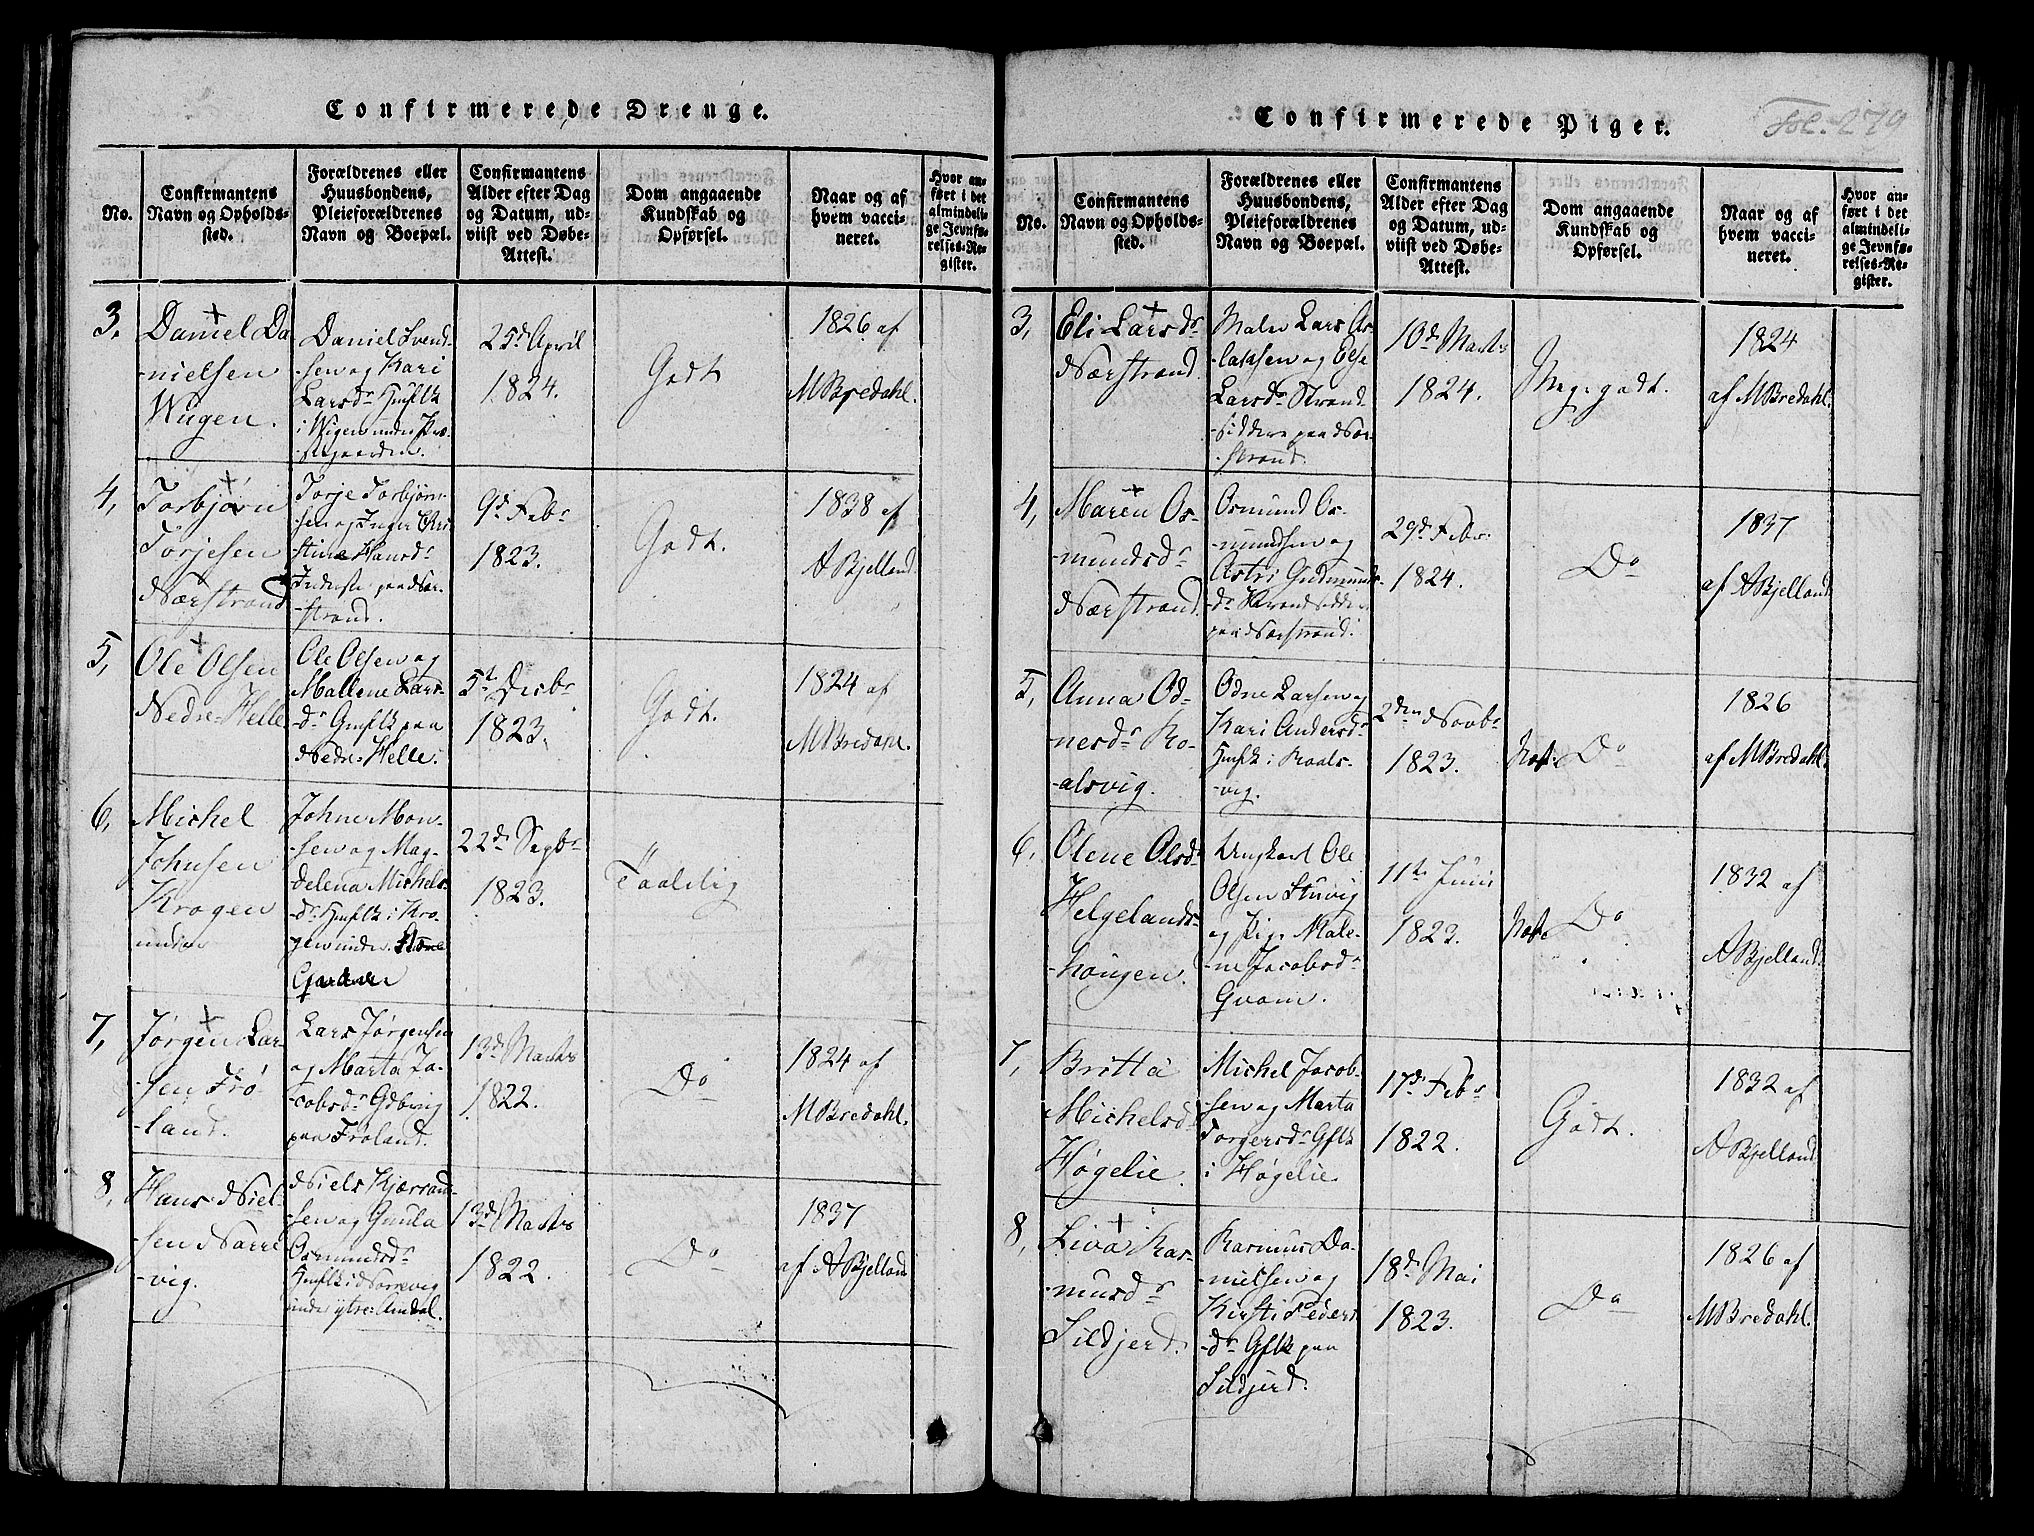 Confirmerede Drenge.
No.
Confirmantens
Navn og Opholds-
sted.
Forældrenes eller
Huusbondens,
Pleieforældrenes
Navn og Boepæl.
Confirmantens
Alder efter Dag
og Datum, ud-
viist ved Døbe-
Attest.
Dom angaaende
Kundskab og
Opførsel.
Naar og af
hvem vacci-
neret.
Hvor an-
ført i det
almindeli-
ge Jevnfø-
relses-Re-
gister.
3,
Daniel Da
-nielsen
Wigen.
Daniel Svend-
-sen og Kari
Larsdr Hmflk
i Wigen under Præ-
-stegaarden.
25d April
1824.
Godt
1826 af
MBredahl.
4,
Torbjørn
Torjesen
Nærstrand
Torje Torbjørn-
sen og Inger Chri
stine Hansdr
Inderste paa Nær-
-strand.
9d Febr
1823.
Godt.
1838 af
ABjelland.
5,
Ole Olsen
Nedre-Helle
Ole Olsen og
Mallene Lars-
-dr Gmflk paa
Nedre-Helle.
5t Decbr
1823.
Godt.
1824 af
MBredahl.
6,
Michel
Johnsen
Krogen
under
Johne Mon-
-sen og Mag-
delena Michels-
-dr Hmflk i Kro
gen under Stone
22d Septbr
1823.
Taalelig
7,
Jørgen Lar-
-sen Frø
-land.
Lars Jørgensen
og Marta Ja-
-cobsdr Gdbrug
paa Frøland.
13d Marts
1822.
Do
1824 af
MBredahl.
8,
Hans Niel-
sen Narre
-vig.
Niels Kjærrand-
-sen og Gunla
Osmundsdr
Hmflk i Narrevig
under ytre-Amdal.
13d Marts
1822.
Do
1837
af ABjelland
Confirmerede Piger.
Fol. 279
No.
Confirmantens
Navn og Opholds-
sted.
Forældrenes eller
Huusbondens,
Pleieforældrenes
Navn og Boepæl.
Confirmantens
Alder efter Dag
og Datum, ud-
viist ved Døbe-
Attest.
Dom angaaende
Kundskab og
Opførsel.
Naar og af
hvem vacci-
neret.
Hvor an-
ført i det
almindeli-
ge Jevnfø-
relses-Re-
gister.
3,
Eli Larsdr
Nærstrand
Maler Lars As-
-laksen og Else
Larsdr Strand-
-siddere paa Nær-
-strand.
10d Marts
1824.
Meget godt.
1824
af MBredahl.
4,
Maren Os-
-mundsdr
Nærstrand.
Osmund Os-
-mundsen og
Astri Gudmunds-
-dr Strandsidder
paa Nærstrand.
29d Febr.
1824.
Do
1837
af ABjelland
5,
Anna Od-
nesdr Ro-
-alsvig.
Odne Larsen og
Kari Andersdr
Hmflk i Roals-
-vig.
2den Novbr
1823.
Do
1826
af MBredahl.
6,
Olene Olsdr
Helgelands-
-haugen.
Ungkarl Ole
Olsen Stuvig
og Pige Male-
-ne Jacobsdr
Qvam.
11te Juni
1823.
Do
1832 af
ABjelland.
7,
Britta
Michelsdr
Høgelie.
Michel Jacob-
-sen og Marta
Torgersdr Gflk
i Høgelie
17d Febr
1822.
Godt.
1832 af
ABjelland
8,
Liva Ras-
-musdr
Sildjerd.
Rasmus Da-
-nielsen og
Kirsti Peders
-dr Gflk paa
Sildjerd.
18d Mai
1823.
Do
1826 af
MBredahl.